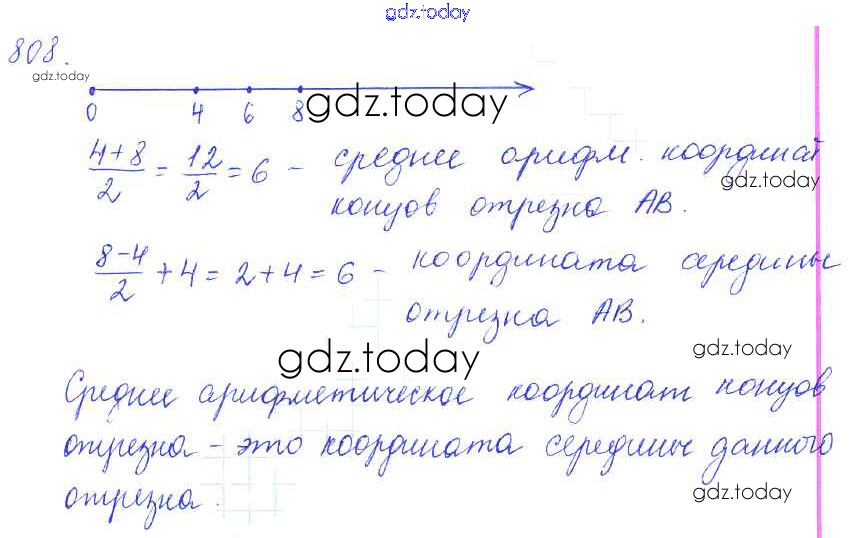 gdz.today
808.
gdz.today
0 4 6 8 gdz.today
(4+8)/2 = 12/2 = 6 – среднее арифм. координат
gdz.today
концов отрезка АВ.
(8-4)/2 + 4 = 2 + 4 = 6 – координата середины
отрезка АВ.
gdz.today
gdz.today
Среднее арифметическое координат концов
отрезка – это координата середины данного
отрезка.
gdz.today